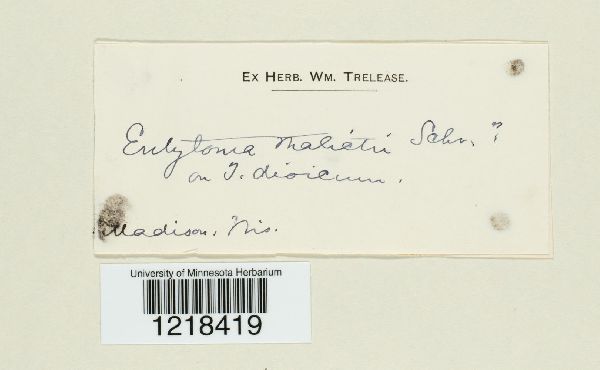 Ex Herb. Wm. Trelease.
Entyloma Thalictri Schr. ?
on T. dioicum.
Madison, Wis.
University of Minnesota Herbarium
1218419